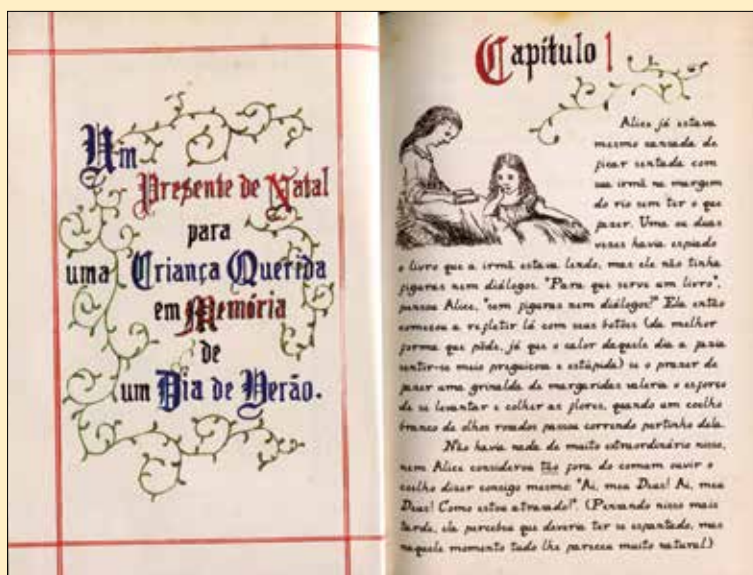 Um
Presente de Natal
para
uma Criança Querida
em Memória
de
um Dia de Verão.
Capítulo 1
Alice já estava
mesmo cansada de
ficar sentada com
sua irmã na margem
do rio sem ter o que
fazer. Uma ou duas
vezes havia espiado
o livro que a irmã estava lendo, mas ele não tinha
figuras nem diálogos. "Para que serve um livro",
pensou Alice, "sem figuras nem diálogos?" Ela então
começou a refletir lá com seus botões (da melhor
forma que pôde, já que o calor daquele dia a fazia
sentir-se meio preguiçosa e estúpida) se o prazer de
fazer uma grinalda de margaridas valeria o esforço
de se levantar e colher as flores, quando um coelho
branco de olhos rosados passou correndo pertinho dela.
Não havia nada de muito extraordinário nisso,
nem Alice considerou tão fora do comum ouvir o
coelho dizer consigo mesmo: "Ai, meu Deus! Ai, meu
Deus! Como estou atrasado!" (Pensando nisso mais
tarde, ela percebeu que deveria ter se espantado, mas
naquele momento tudo lhe pareceu muito natural)